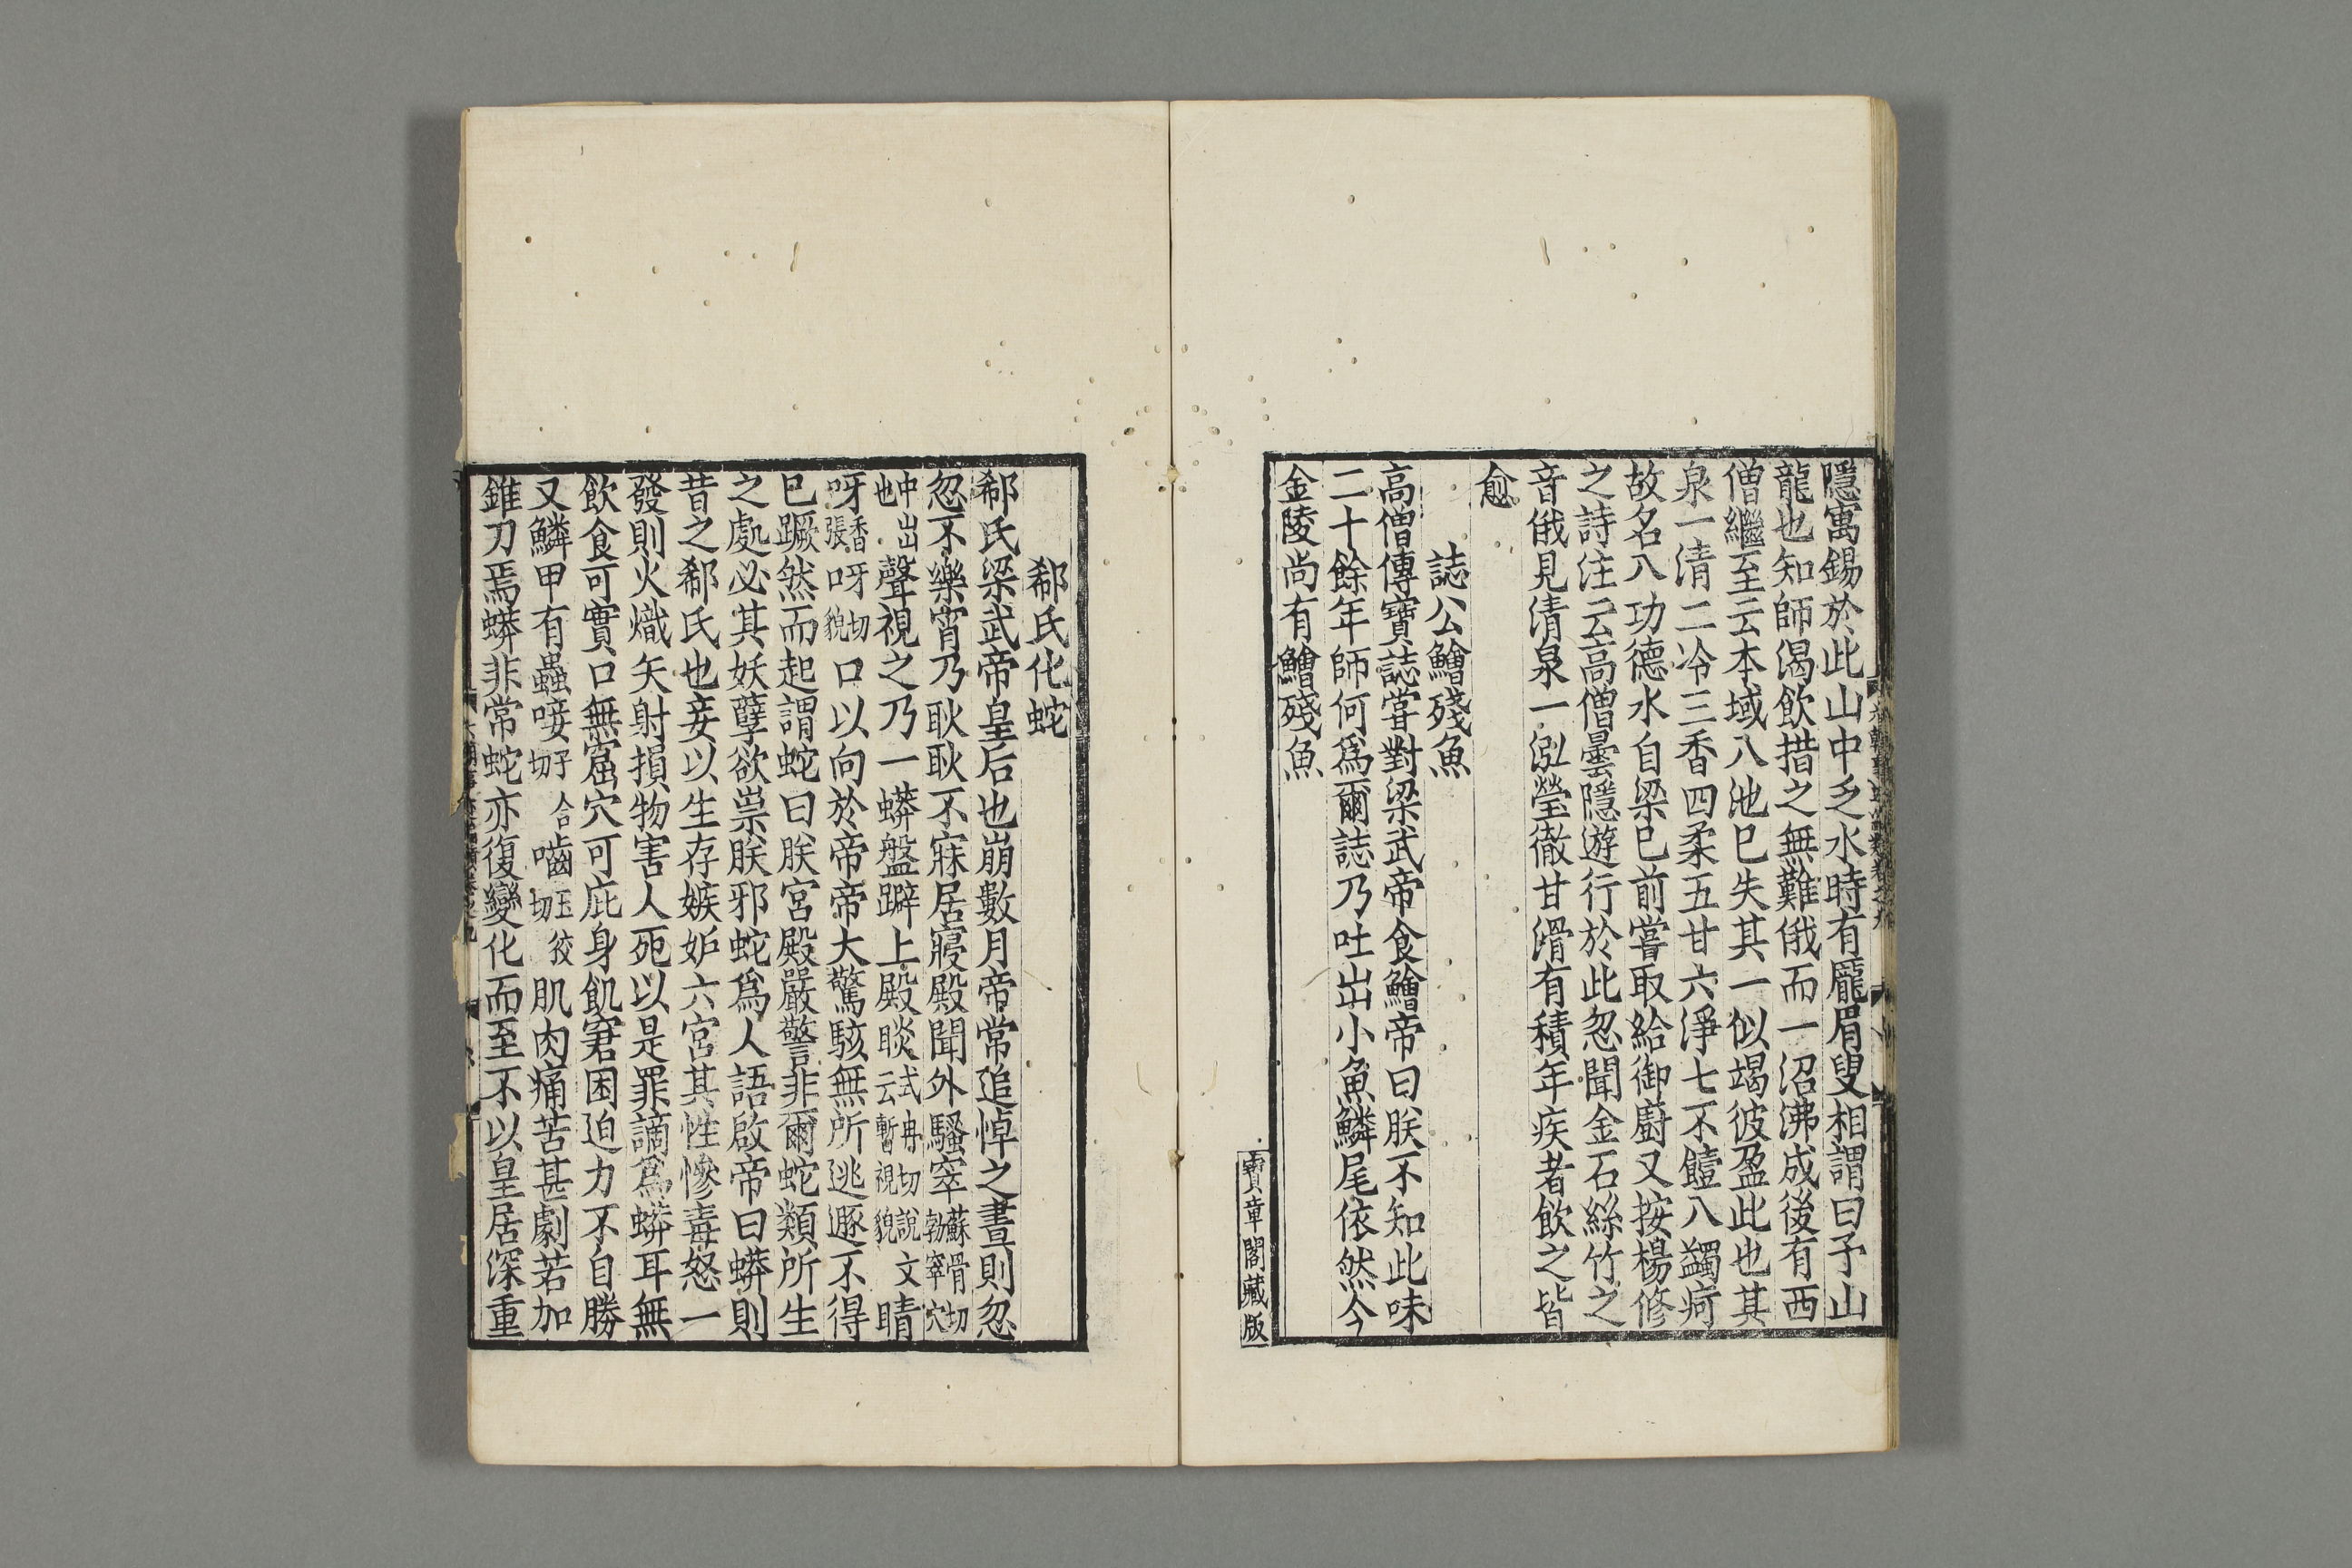 隱寓錫於此山中乏水時有龐眉叟相謂曰予山
龍也知師渴飲措之無難俄而一沼沸成後有西
僧繼至云本域八池巳失其一似竭彼盈此也其
泉一清二冷三香四柔五甘六淨七不饐八蠲疴
故名八功德水自梁巳前嘗取給御廚又按楊修
之詩注云高僧曇隱遊行於此忽聞金石絲竹之
音俄見清泉一泓瑩徹甘滑有積年疾者飲之皆
愈
誌公鱠殘魚
高僧傳寶誌嘗對梁武帝食鱠帝曰朕不知此味
二十餘年師何爲爾誌乃吐出小魚鱗尾依然今
金陵尚有鱠殘魚
寶章閣藏版
郗氏化蛇
郗氏梁武帝皇后也崩數月帝常追悼之晝則忽
忽不樂宵乃耿耿不寐居寢殿聞外騷窣蘇骨切勃窣穴
中出也聲視之乃一蟒盤躃上殿睒式冉切說文云暫視貌睛
呀香呀切張口貌口以向於帝帝大驚駭無所逃遯不得
巳蹶然而起謂蛇曰朕宮殿嚴警非爾蛇類所生
之處必其妖孽欲祟朕邪蛇爲人語啟帝曰蟒則
昔之郗氏也妾以生存嫉妒六宮其性慘毒怒一
發則火熾矢射損物害人死以是罪謫爲蟒耳無
飲食可實口無窟穴可庇身飢窘困迫力不自勝
又鱗甲有蟲唼子合切嚙五狡切肌肉痛苦甚劇若加
錐刀焉蟒非常蛇亦復變化而至不以皇居深重